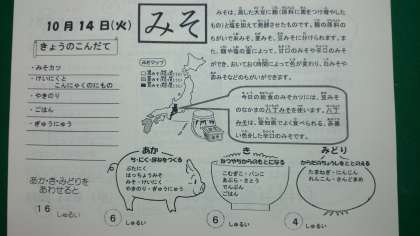 10月14日(火)
みそ
きょうのこんだて
・みそカツ
・けいにくと
こんにゃくのにもの
・やきのり
・ごはん
・ぎゅうにゅう
あか・き・みどりを
あわせると
16
しゅるい
みそは、蒸した大豆に麹(原料に菌をつけ増やした
もの)と塩を加えて発酵させたものです。麹の原料の
ちがいで米みそ、麦みそ、豆みそに分けられます。ま
た、麹や塩の量によって、甘口のみそや辛口のみそが
でき、おいておく時間によって色が変わり、白みそや
赤みそなどのちがいができます。
みそマップ
今日の給食のみそカツには、豆みそ
のなかまの八丁みそを使います。八丁
みそは、愛知県でよく食べられる、茶黒
い色をした辛口のみそです。
あか
ち・にく・ほねをつくる
ぶたにく
はっちょうみそ
みそ・けいにく
やきのり・ぎゅうにゅう
6
しゅるい
き
ねつやちからのもとになる
こむぎこ・パンこ
あぶら・さとう
でんぷん
ごはん
6
しゅるい
みどり
からだのちょうしをととのえる
たまねぎ・にんじん
れんこん・さんどまめ
4
しゅるい